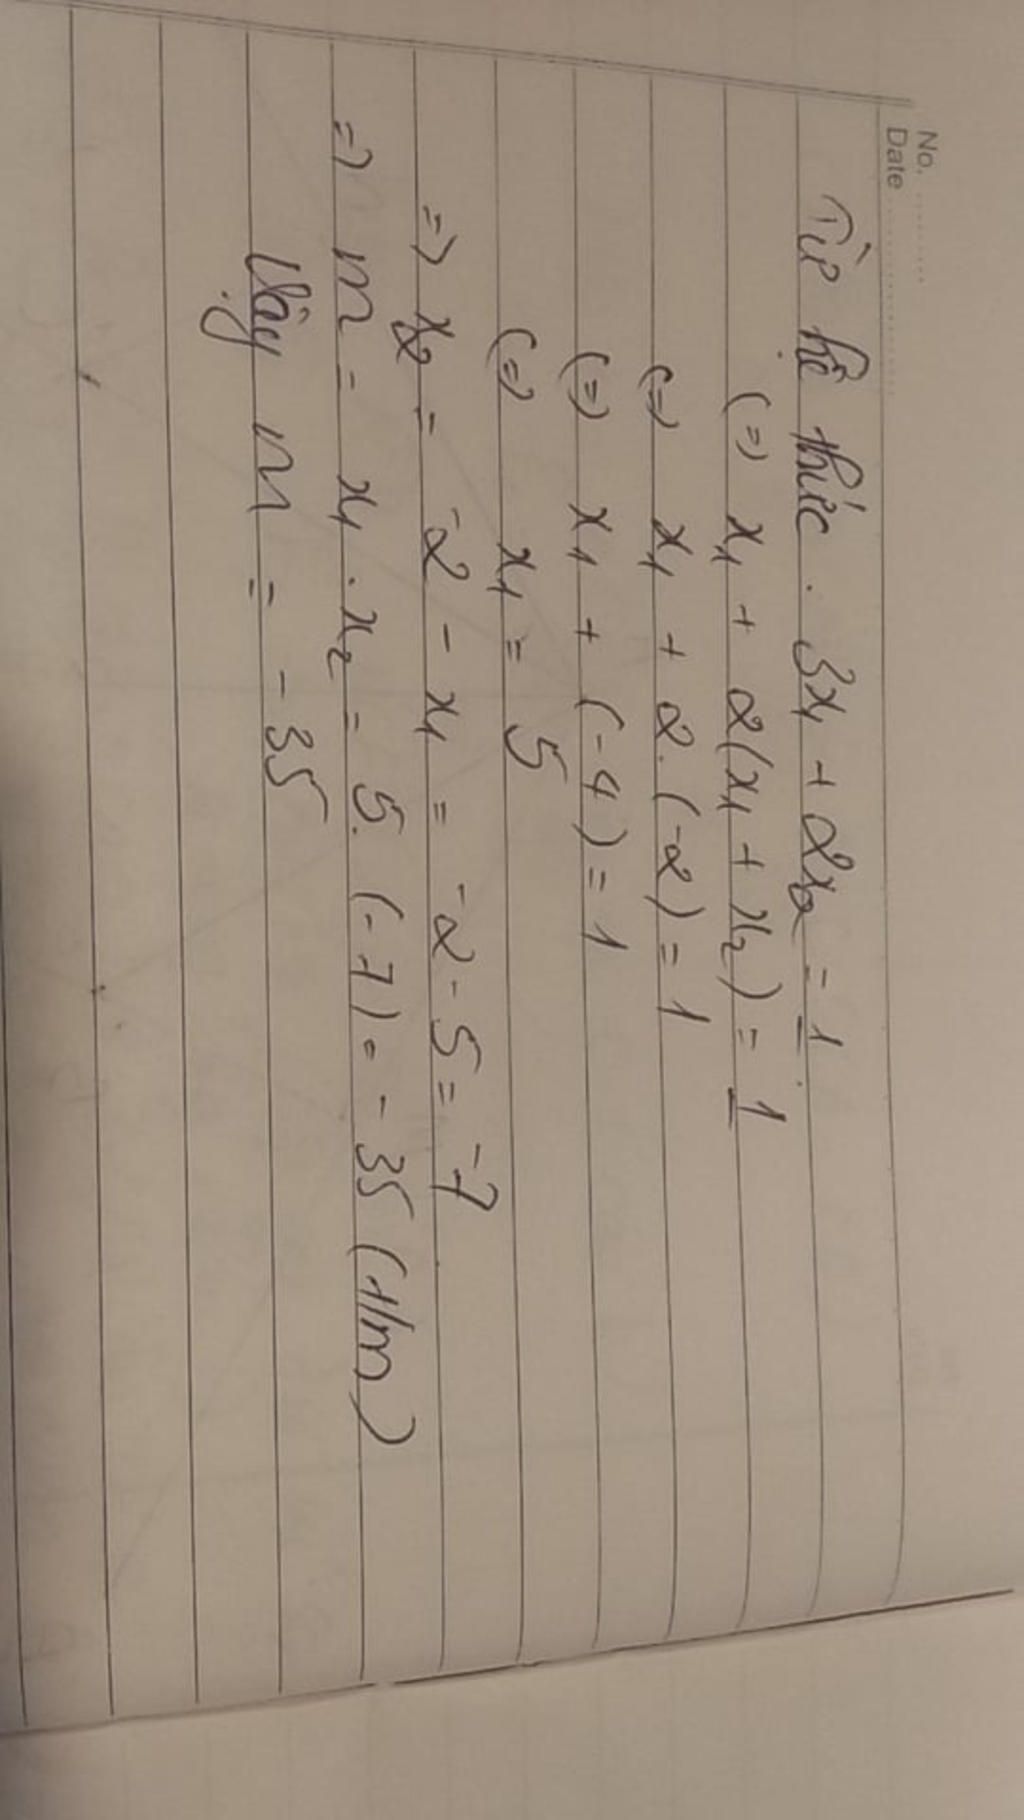 No. ............
Date ........................
Từ hệ thức . 3x₁ + 2x₂ = 1
(=) x₁ + 2(x₁ + x₂) = 1
(=) x₁ + 2.(-2) = 1
(=) x₁ + (-4) = 1
(=) x₁ = 5
=) x₂ = -2 - x₁ = -2 - 5 = -7
=) m = x₁ . x₂ = 5. (-7) = - 35 (t/m)
Vậy m = - 35